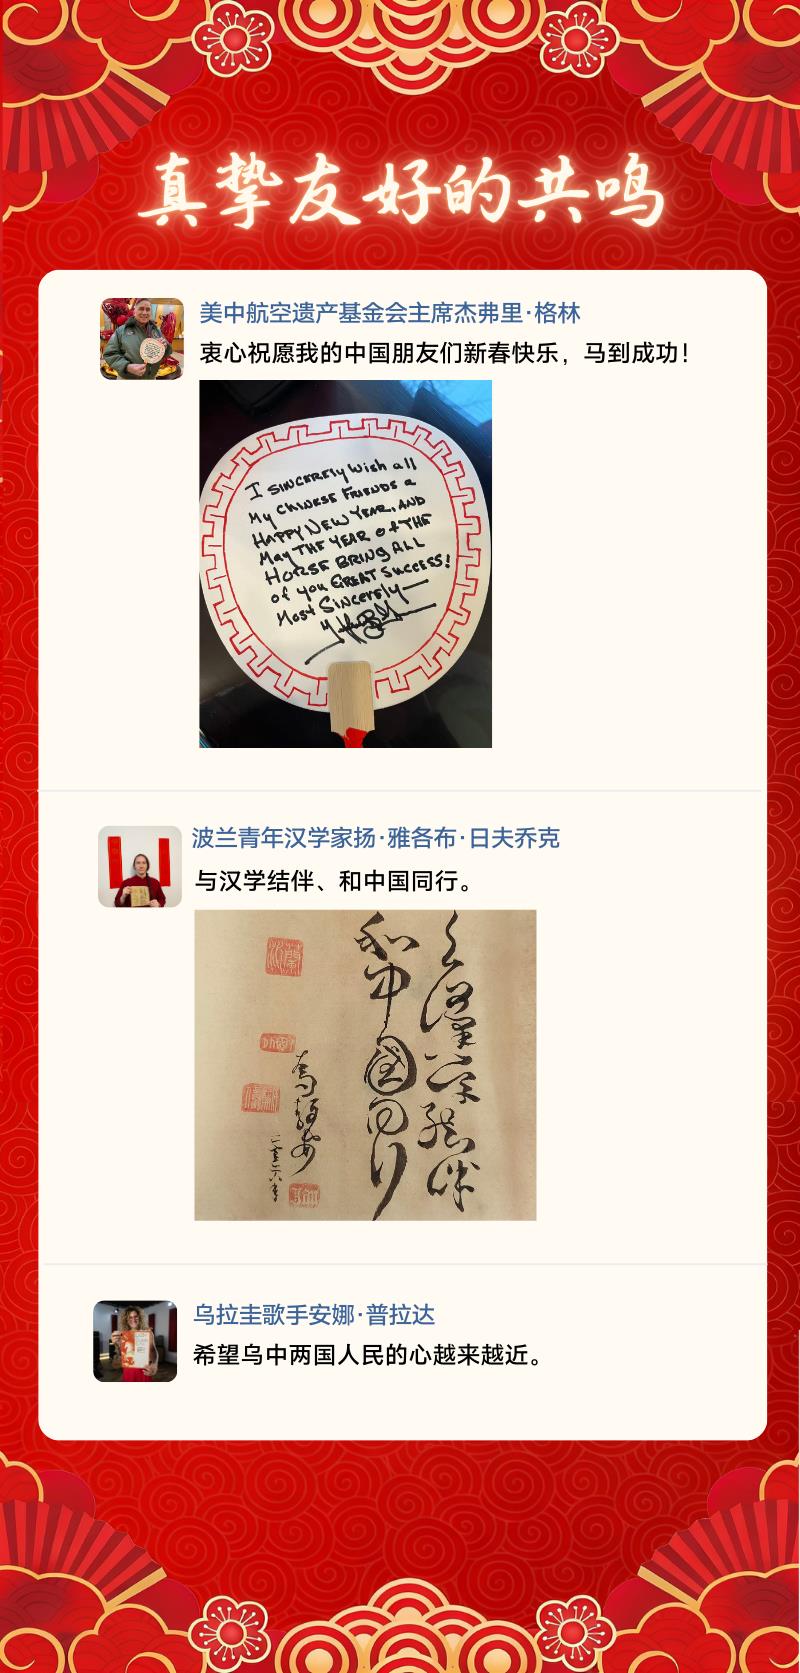 真挚友好的共鸣
美中航空遗产基金会主席杰弗里·格林
衷心祝愿我的中国朋友们新春快乐，马到成功！
I SINCERELY Wish all
My CHINESE FRIENDS a
HAPPY NEW YEAR, AND
May THE YEAR of THE
HORSE BRING ALL
of you GREAT SUCCESS!
Most Sincerely—
波兰青年汉学家扬·雅各布·日夫乔克
与汉学结伴、和中国同行。
与漢学结伴
和中國同行
乌拉圭歌手安娜·普拉达
希望乌中两国人民的心越来越近。